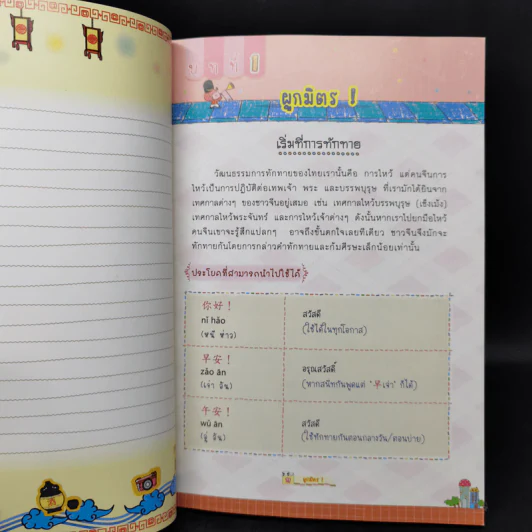 บทที่ 1
ผูกมิตร !
เริ่มที่การทักทาย
วัฒนธรรมการทักทายของไทยเรานั้นคือ การไหว้ แต่คนจีนการ
ไหว้เป็นการปฏิบัติต่อเทพเจ้า พระ และบรรพบุรุษ ที่เรามักได้ยินจาก
เทศกาลต่างๆ ของชาวจีนอยู่เสมอ เช่น เทศกาลไหว้บรรพบุรุษ (เช็งเม้ง)
เทศกาลไหว้พระจันทร์ และการไหว้เจ้าต่างๆ ดังนั้นหากเราไปยกมือไหว้
คนจีนเขาจะรู้สึกแปลกๆ อาจถึงขั้นตกใจเลยทีเดียว ชาวจีนจึงมักจะ
ทักทายกันโดยการกล่าวคำทักทายและก้มศีรษะเล็กน้อยเท่านั้น
ประโยคที่สามารถนำไปใช้ได้
你好！
nǐ hǎo
(หนี ห่าว)
สวัสดี
(ใช้ได้ในทุกโอกาส)
早安！
zǎo ān
(เจ่า อัน)
อรุณสวัสดิ์
(หากสนิทกันพูดแค่ "早เจ่า" ก็ได้)
午安！
wǔ ān
(อู่ อัน)
สวัสดี
(ใช้ทักทายกันตอนกลางวัน/ตอนบ่าย)
ผูกมิตร !